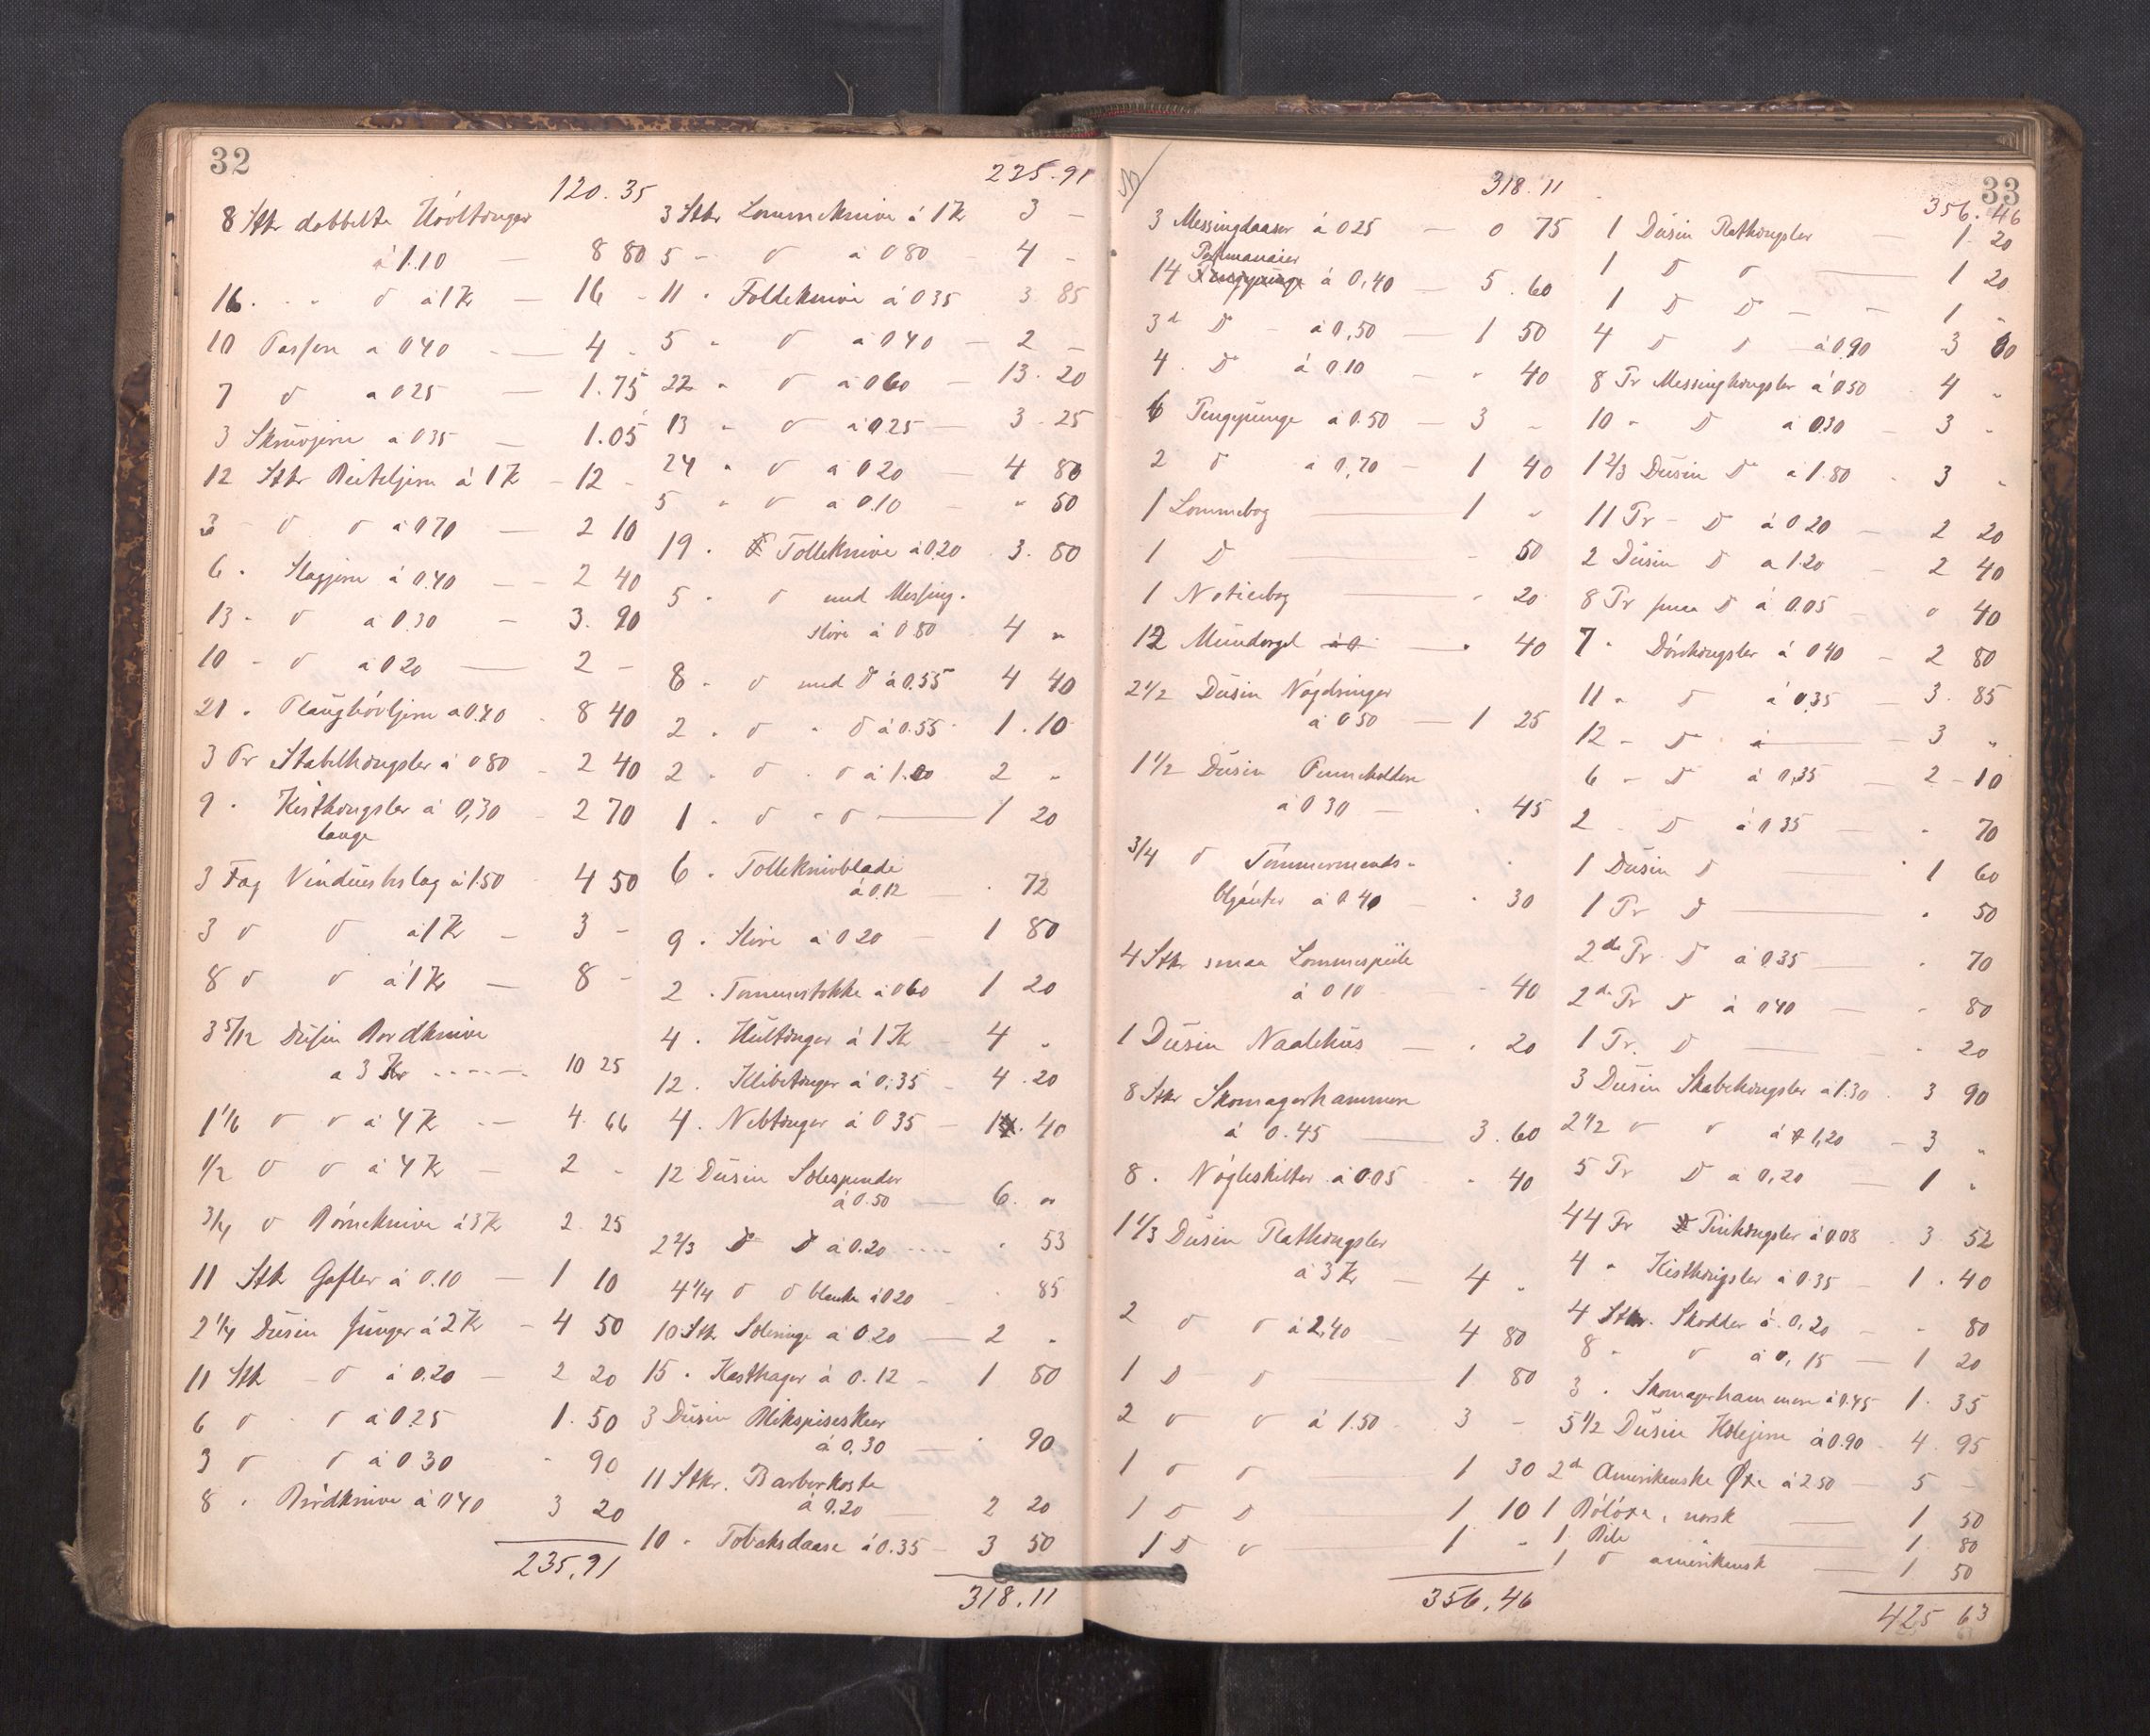 32
120.35
8 Stk dobbelte Hövltænger
á 1.10 — 8 80
16 . . d á 1 Kr — 16 -
10 Passere a 0 40 - — 4 -
7 d a 0 25 — 1.75
3 Skruvjern a 0 35 — 1.05
12 Stkr Beiteljern á 1 K - 12 -
3 - d d á 0 70 — 2 10
6 . Slagjern á 0.40 - - 2 40
13 - d á 0.30 — 3.90
10 - d á 0 20 — 2 -
21 . Plaughövljern a 0.40 . 8 40
3 Pr Stabelhængsler á 0 80 - 2 40
9 . Kisthængsler á 0,30 - 2 70
lange
3 Fag Vinduesbslag á 1.50 - 4 50
3 d d á 1 Kr - 3 -
8 d d á 1 Kr — 8 -
3 5/12 Dusin Bordknive
a 3 Kr - - - - - 10 25
1 1/6 d d á 4 K - - 4. 66
1/2 d d á 4 Kr - 2 -
3/4 d Börneknive á 3 Kr 2. 25
11 Stk Gafler á 0.10 — 1 10
2 1/4 Dusin á 2 Kr - 4 50
11 Stk - d á 0.20 - 2 20
6 d . d á 0.25 1. 50
3 d d á 0 30 - 90
8 . Brödknive á 0 40 3 20
235,91
235.91
3 Stkr Lommeknive á 1 K 3 -
5 - d á 0 80 - 4 -
11 . Foldeknive á 0 35 3. 85
5 . d a 0 40 - 2 -
22 . d á 0 60 - 13. 20
13 . d á 0.25 - 3. 25
24 . d á 0 20 — 4 80
5 . d a 0.10 — - 50
19 . Tolleknive á 0.20 . 3. 80
5 . d med Messing.
slire á 0 80 . 4 "
8 . d med D á 0.55 4 40
2 . d . D á 0.55 . 1.10
2 . d . d á 1.00 2 -
1 . d . d — 1 20
6 . Tolleknivblade
á 0.12 — . 72
9 . Slire á 0 20 — 1 80
2 . Tommerstokke á 0 60 1 20
4 . Hultænger á 1 K - 4 -
12 . Knibetænger á 0.35 - 4.20
4 . Nebtænger á 0 35 - 1. 40
12 Dusin Selespender
á 0.50 — 6. "
2 2/3 D D á 0.20 .... . 53
4 1/4 d d blanke á 0 20 - . 85
10 Stk Seleringe á 0.20 — 2 -
15 . Kasthager á 0.12 - 1 80
3 Dusin Blikspiseskeer
á 0.30 — . 90
11 Stkr. Barberkoste
á 0.20 — 2 20
10 . Tobaksdaase á 0.35 - 3 50
318.11
33
318.11
3 Messingdaaser á 0 25 - 0 75
Portmonaier
14 á 0,40 - 5.60
3 d D - á 0,50 — 1 50
4 . D á 0.10 - - 40
6 Pengepunge á 0.50 - 3 -
2 d á 0,70 - 1 40
1 Lommebog — 1 -
1 D — - 50
1 Notisbog — - 20
12 Mundorgel — . 40
2 1/2 Dusin Nögelringer
á 0 50 — 1 25
1 1/2 Dusin Penneholdere
á 0 30 — . 45
3/4 d Tömmermands-
blyanter á 0.40 - . 30
4 Stkr smaa Lommespeile
á 0 10 - 40
1 Dusin Naalehus — . 20
8 Stkr Skomagerhammere
á 0.45 — 3.60
8 . Nögleskilter á 0.05 - 40
1 1/3 Dusin Plathængsler
á 3 Kr — 4 -
2 d d á 2,40 - 4 80
1 D d — 1 80
2 d d á 1.50 . 3 -
1 d d — 1 30
1 D D — 1 10
1 D d — 1 -
356.46
33
356.46
1 Dusin Plathængsler — 1. 20
1 D d — 1 20
1 D D - - 1 -
4 D D - á 0.90 3 60
8 Pr Messinghængsler á 0.50 . 4 -
10 - D á 0.30 - 3 -
1 2/3 Dusin D á 1.80 - 3 -
11 Pr - D á 0 20 - 2 20
2 Dusin D a 1.20 - 2 40
8 Pr smaa D á 0.05 - 0 40
7 . Dörehængsler á 0 40 - 2 80
11 - D á 0.35 - 3. 85
12 - D . á — - 3 -
6 - D á 0,35 - 2 - 10
2 - D á 0 35 - . 70
1 Dusin D — 1 60
1 Pr D — . 50
2 de Pr D á 0.35 — . 70
2 de Pr D á 0 40 — . 80
1 Pr. D — . 20
3 Dusin Skabehængsler a 1.30 . 3 90
2 1/2 d d á 1,20 - 3 -
5 Pr D a 0,20 — 1 -
44 Pr Pinhængsler á 0.08 . 3. 52
4 . Kisthængsler á 0.35 - 1. 40
4 Stkr. Skodder á 0.20 - - 80
8 . d á 0,15 — 1 20
3 . Skomagerhammere á 0.45 1. 35
5 1/2 Dusin Hælejern á 0.90 . 4. 95
2 d Amerikanske Øxe á 2.50 - 5 -
1 Bolöxe, norsk — 1 50
1 Bile — 1. 80
1 d amerikansk — 1 50
425 63